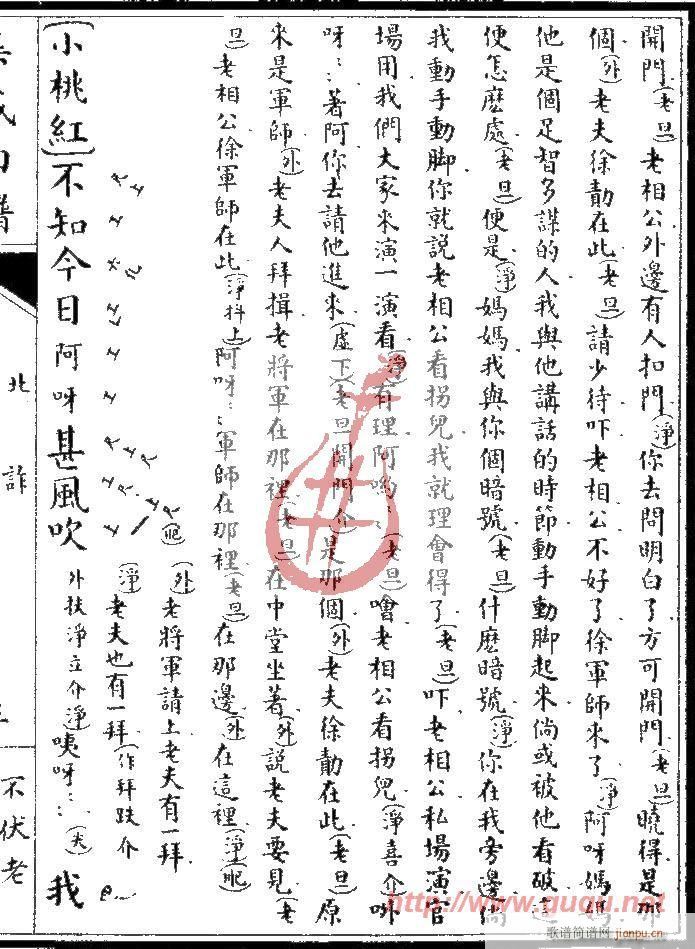 開門(老旦)老相公外邊有人扣門(淨)你去問明白了方可開門(老旦)曉得是
個(外)老夫徐勣在此(老旦)請少待吓老相公不好了徐軍師來了(淨)阿呀媽媽
他是個足智多謀的人我與他講話的時節動手動脚起來倘或被他看破這
便怎麽處(老旦)便是(淨)媽媽我與你個暗號(老旦)什麽暗號(淨)你在我旁邊倘
我動手動脚你就説老相公看拐兒我就理會得了(老旦)吓老相公私場演官
場用我們大家來演一演看(淨)有理阿喲(老旦)噲老相公看拐兒(淨喜介)
呀著阿你去請他進來(虛下)(老旦開門介)是那個(外)老夫徐勣在此(老旦)原
來是軍師(外)老夫人拜揖老將軍在那裡(老旦)在中堂坐著(外)説老夫要見(老
旦)老相公徐軍師在此(淨抖上)阿呀軍師在那裡(老旦)在那邊(外)在這裡(淨)
(外)老將軍請上老夫有一拜
(淨)老夫也有一拜(作拜跌介
外扶淨立介淨)咦呀
(小桃紅)不知今日阿呀甚風吹我
北詐
不伏老
http://www.guqu.net
歌谱简谱网 jianpu.cn